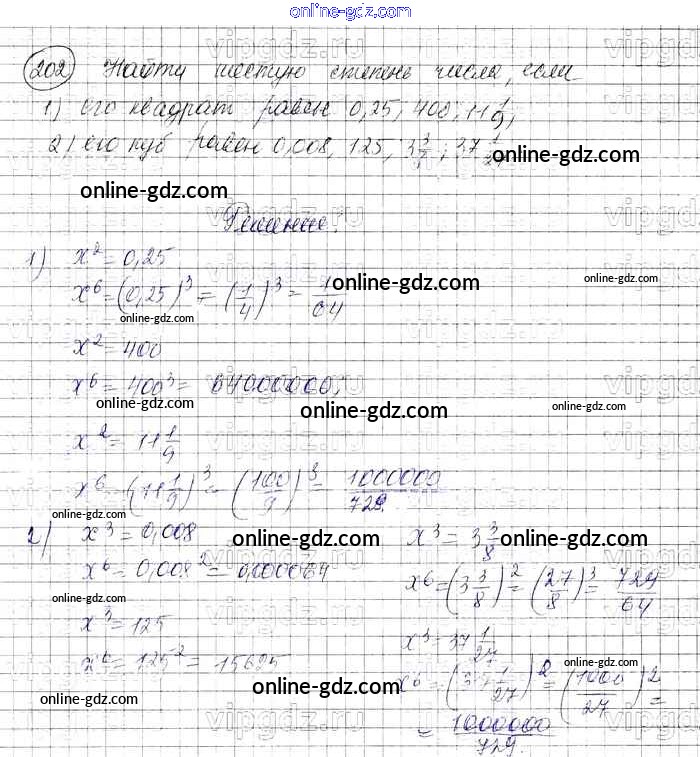 online-gdz.com
202 Найти шестую степень числа, если
1) его квадрат равен 0,25; 400; 11 1/9;
2) его куб равен 0,008, 125, 3 3/8; 37 1/27
online-gdz.com
online-gdz.com
Решение:
1) x² = 0,25
x⁶ = (0,25)³ = (1/4)³ = 1/64
online-gdz.com
online-gdz.com
online-gdz.com
x² = 400
x⁶ = 400³ = 64000000;
online-gdz.com
online-gdz.com
online-gdz.com
x² = 11 1/9
x⁶ = (11 1/9)³ = (100/9)³ = 1000000/729.
2) x³ = 0,008
x⁶ = 0,008² = 0,000064
online-gdz.com
online-gdz.com
x³ = 125
x⁶ = 125² = 15625
online-gdz.com
online-gdz.com
x³ = 3 3/8
online-gdz.com
x⁶ = (3 3/8)² = (27/8)³ = 729/64
x³ = 37 1/27
online-gdz.com
x⁶ = (37 1/27)² = (1000/27)² =
= 1000000/729.
vipgdz.ru